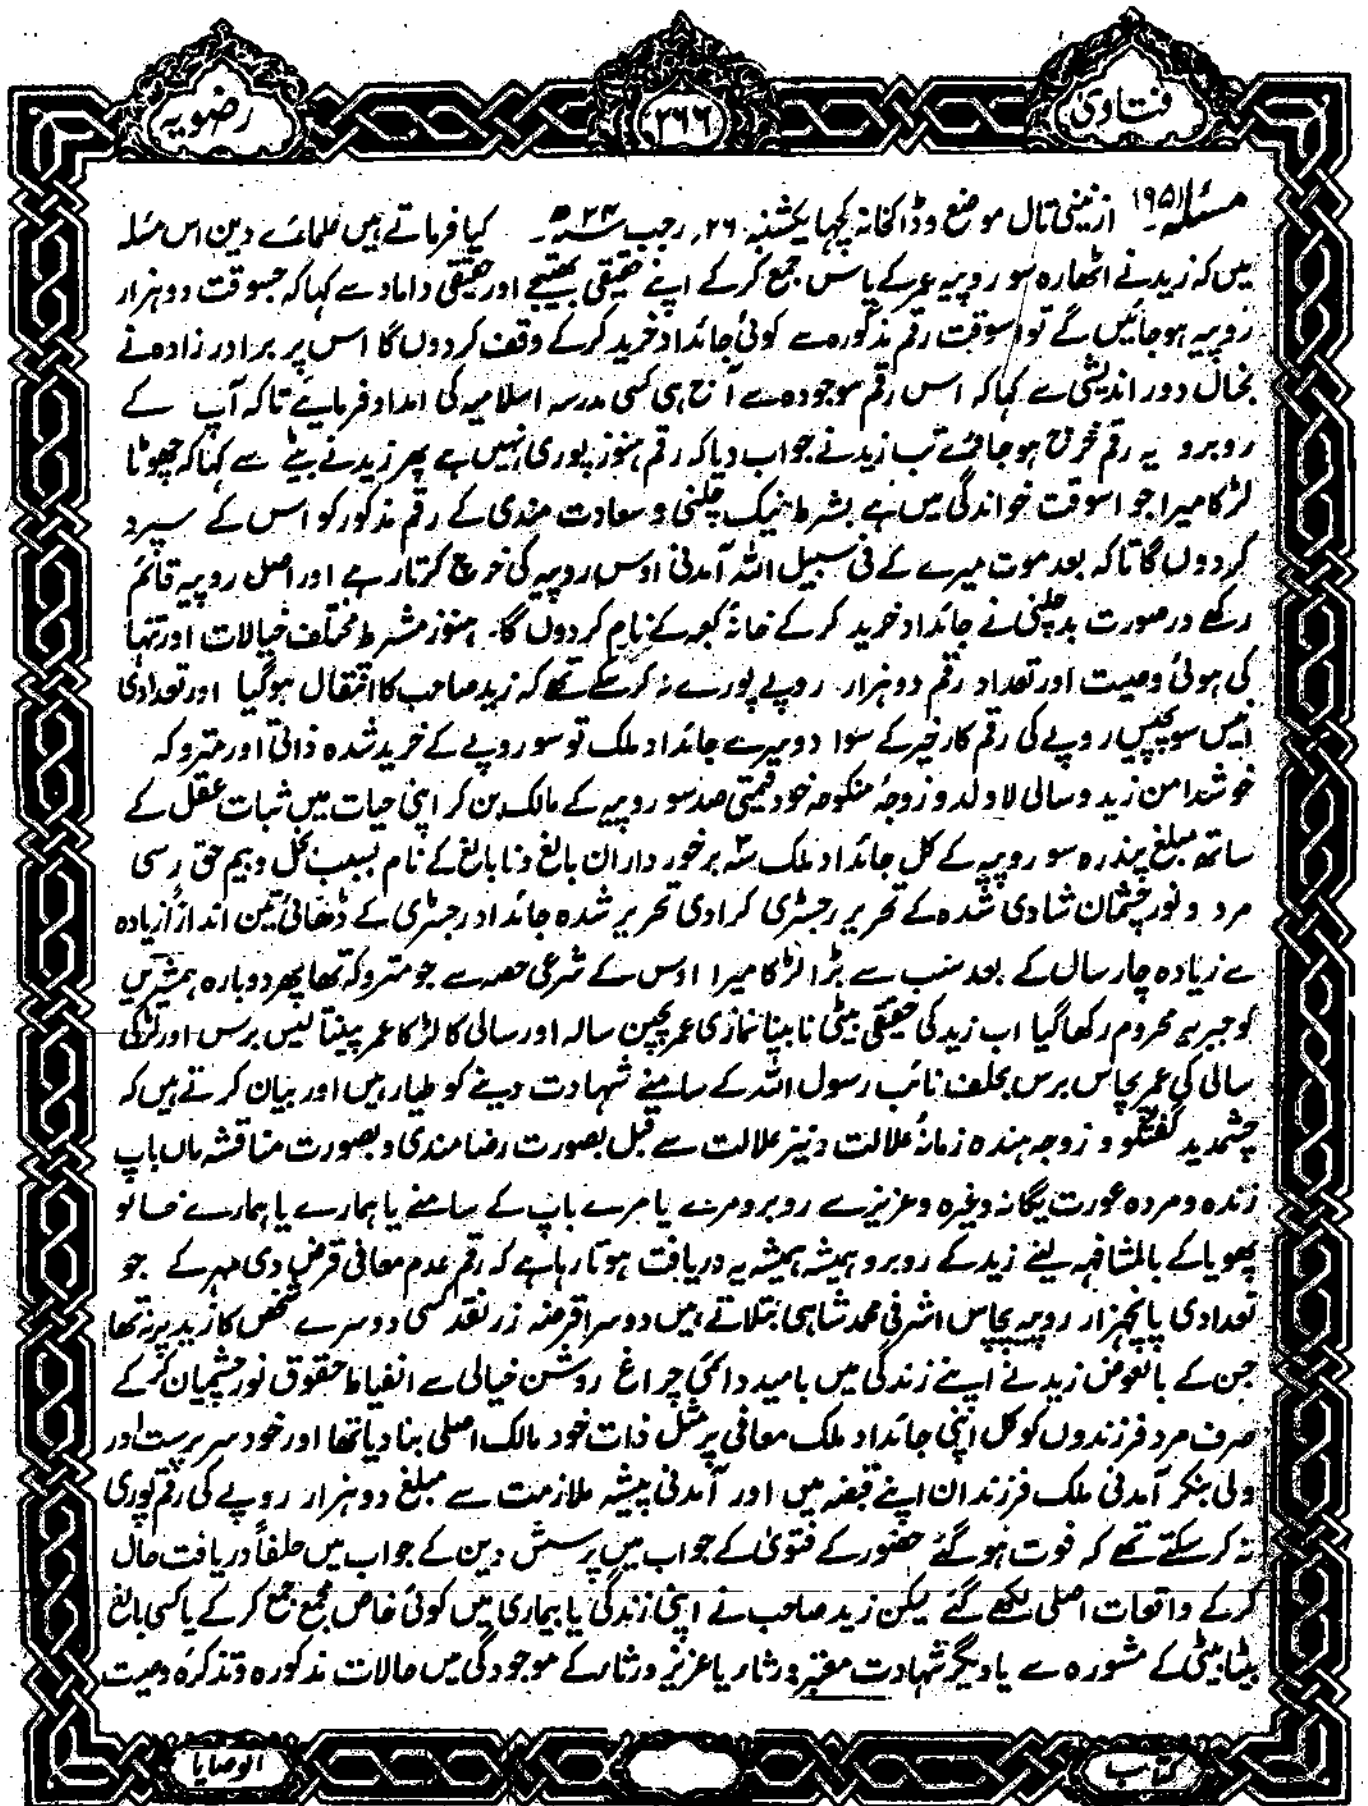 فتاویٰ
۲۶۶
رضویہ
مسئلہ ۱۹۵ از نینی تال موضع وڈاکخانہ کچھا یکشنبہ ۲۶؍ رجب ۲۴ھ۔ کیا فرماتے ہیں علمائے دین اس مسئلہ
میں کہ زید نے اٹھارہ سو روپیہ عمر کے پاس جمع کرکے اپنے حقیقی بھتیجے اور حقیقی داماد سے کہا کہ جسوقت دوہزار
روپیہ ہوجائیں گے تو اسوقت رقم مذکورہ سے کوئی جائداد خرید کرکے وقف کردوں گا اس پر برادر زادہ نے
بخال دور اندیشی سے کہا کہ اس رقم موجودہ سے آج ہی کسی مدرسہ اسلامیہ کی امداد فرمایے تاکہ آپ کے
روبرو یہ رقم خرچ ہوجائے تب زید نے جواب دیا کہ رقم ہنوز پوری نہیں ہے پھر زید نے بیٹے سے کہا کہ چھوٹا
لڑکا میرا جو اسوقت خواندگی میں ہے بشرط نیک چلنی و سعادت مندی کے رقم مذکور کو اس کے سپرد
کردوں گا تاکہ بعد موت میرے کے فی سبیل اللہ آمدنی اوس روپیہ کی خرچ کرتا رہے اور اصل روپیہ قائم
رکھے درصورت بدچلنی نے جائداد خرید کرکے خانہ کعبہ کے نام کردوں گا۔ ہنوز مشرط مختلف خیالات اور تنہا
کی ہوئی وصیت اور تعداد رقم دوہزار روپے پورے نہ کرسکے تھے کہ زید صاحب کا انتقال ہوگیا اور تعدادی
انیس سو پچیس روپے کی رقم کارخیر کے سوا دوسرے جائداد ملک نو سو روپے کے خرید شدہ ذاتی اور متروکہ
خوشدامن زید و سالی لاولد و زوجہ منکوحہ خود قیمتی صدسو روپیہ کے مالک بن کر اپنی حیات میں ثبات عقل کے
ساتھ مبلغ پندرہ سو روپیہ کے کل جائداد ملک سہ برخورداران بالغ ونابالغ کے نام بسبب کل وبیم حق رسی
مرد و نورچشمان شادی شدہ کے تحریر رجسٹری کرادی تحریر شدہ جائداد رجسٹری کے ڈھائی تین اندازاً زیادہ
سے زیادہ چار سال کے بعد سب سے بڑا لڑکا میرا اوس کے شرعی حصہ سے جو متروکہ تھا پھر دوبارہ ہمشیرگیں
کو جبریہ محروم رکھا گیا اب زید کی حقیقی بیٹی نابینا نمازی عمر پچپن سالہ اور سالی کا لڑکا عمر پینتالیس برس اور لڑکی
سالی کی عمر پچاس برس بحلف نائب رسول اللہ کے سامنے شہادت دینے کو طیار ہیں اور بیان کرتے ہیں کہ
چشمدید گفتگو و زوجہ ہندہ زمانہ علالت ونیز علالت سے قبل بصورت رضامندی وبصورت مناقشہ ماں باپ
زندہ ومردہ عورت یگانہ وغیرہ وعزیز سے روبرو مرے یا مرے باپ کے سامنے یا ہمارے یا ہمارے خالو
پھوپا کے بالمشافہہ لینے زید کے روبرو ہمیشہ ہمیشہ یہ دریافت ہوتا رہا ہے کہ رقم عدم معافی قرض دی مہر کے جو
تعدادی پانچہزار روپیہ پچاس اشرفی محمد شاہی بتلاتے ہیں دوسرا قرضہ زر نقد کسی دوسرے شخص کا زید پر نہ تھا
جن کے بالعوض زید نے اپنے زندگی میں بامید دائمی چراغ روشن خیالی سے انضباط حقوق نورچشمیان کرکے
صرف مرد فرزندوں کو کل اپنی جائداد ملک معافی پرمثل ذات خود مالک اصلی بنادیا تھا اور خود سرپرست اور
ولی بنکر آمدنی ملک فرزندان اپنے قبضہ میں اور آمدنی پیشہ ملازمت سے مبلغ دوہزار روپے کی رقم پوری
نہ کرسکتے تھے کہ فوت ہوگئے حضور کے فتویٰ کے جواب میں پرسش دین کے جواب میں حلفاً دریافت حال
کرکے واقعات اصلی لکھے گئے لیکن زید صاحب نے اپنی زندگی یا بیماری میں کوئی خاص مجمع جمع کرکے یا کسی بالغ
بیٹا بیٹی کے مشورہ سے یا دیگر شہادت معتبر ورثاء یا عزیز ورثاء کے موجودگی میں حالات مذکورہ وتذکرہ وصیت
کتاب
الوصایا